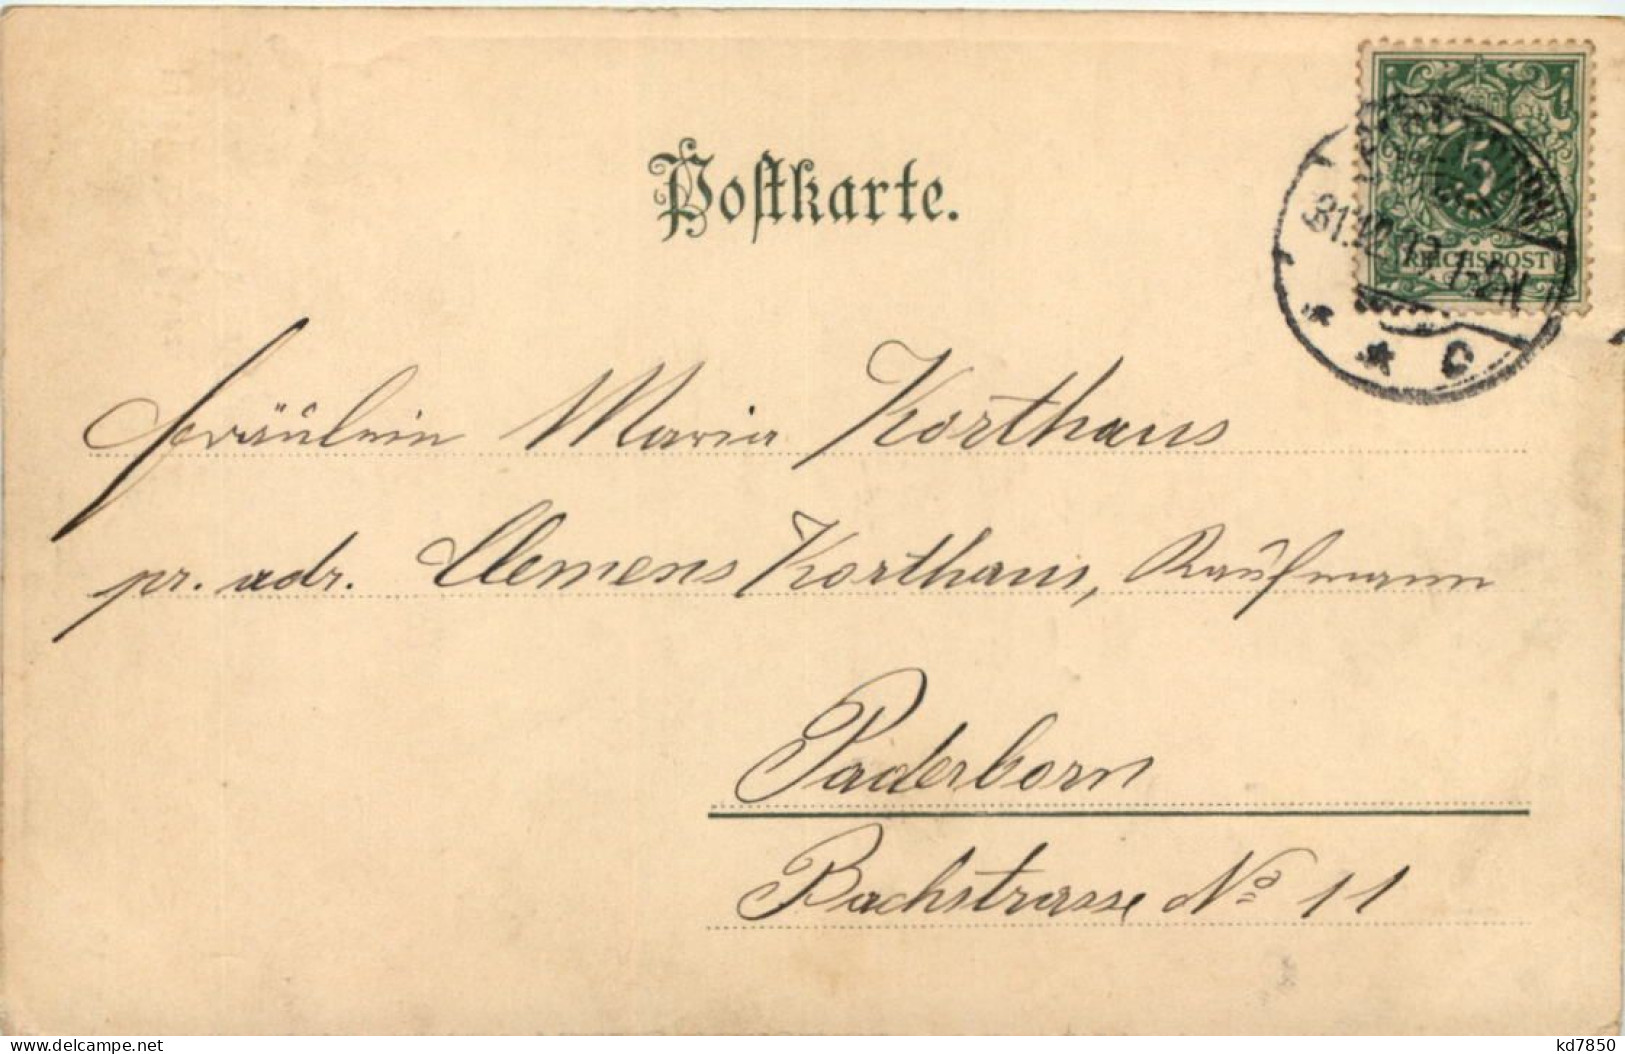 Postkarte.
5
REICHSPOST
1-2N
C
Fräulein Maria Korthaus
pr. adr. Clemens Korthaus, Kaufmann
Paderborn
Bachstrasse No 11
kd7850